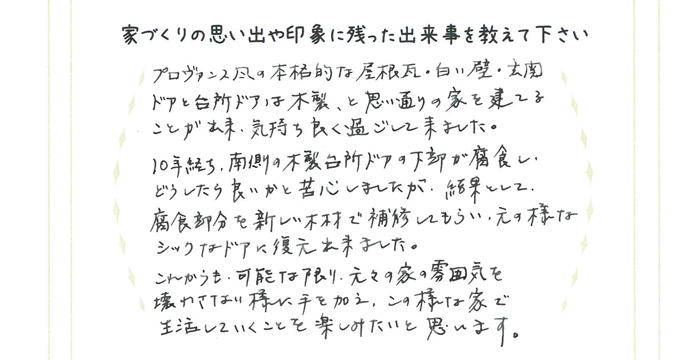 家づくりの思い出や印象に残った出来事を教えて下さい
プロヴァンス風の本格的な屋根瓦・白い壁・玄関
ドアと台所ドアは木製、と思い通りの家を建てる
ことが出来、気持ち良く過ごして来ました。
10年経ち、南側の木製台所ドアの下部が腐食し、
どうしたら良いかと苦心しましたが、結果として、
腐食部分を新しい木材で補修してもらい、元の様な
シックなドアに復元出来ました。
これからも、可能な限り、元々の家の雰囲気を
壊わさない様に手を加え、この様な家で
生活していくことを楽しみたいと思います。